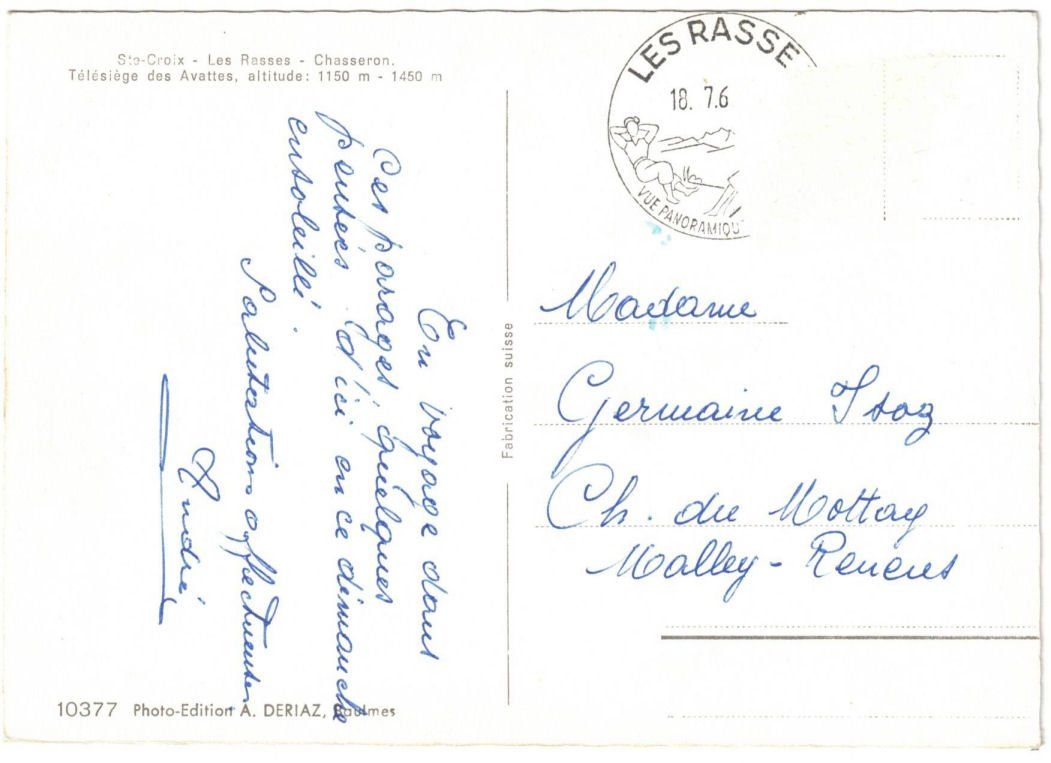 Ste-Croix - Les Rasses - Chasseron.
Télésiège des Avattes, altitude: 1150 m - 1450 m
En voyage dans
ces parages, quelques
pensées d'ici en ce dimanche
ensoleillé.
Salutations affectueuses
André
10377 Photo-Edition A. DERIAZ, Baulmes
Fabrication suisse
LES RASSE
18. 7.6
VUE PANORAMIQU
Madame
Germaine Isoz
Ch. du Mottay
Malley - Renens